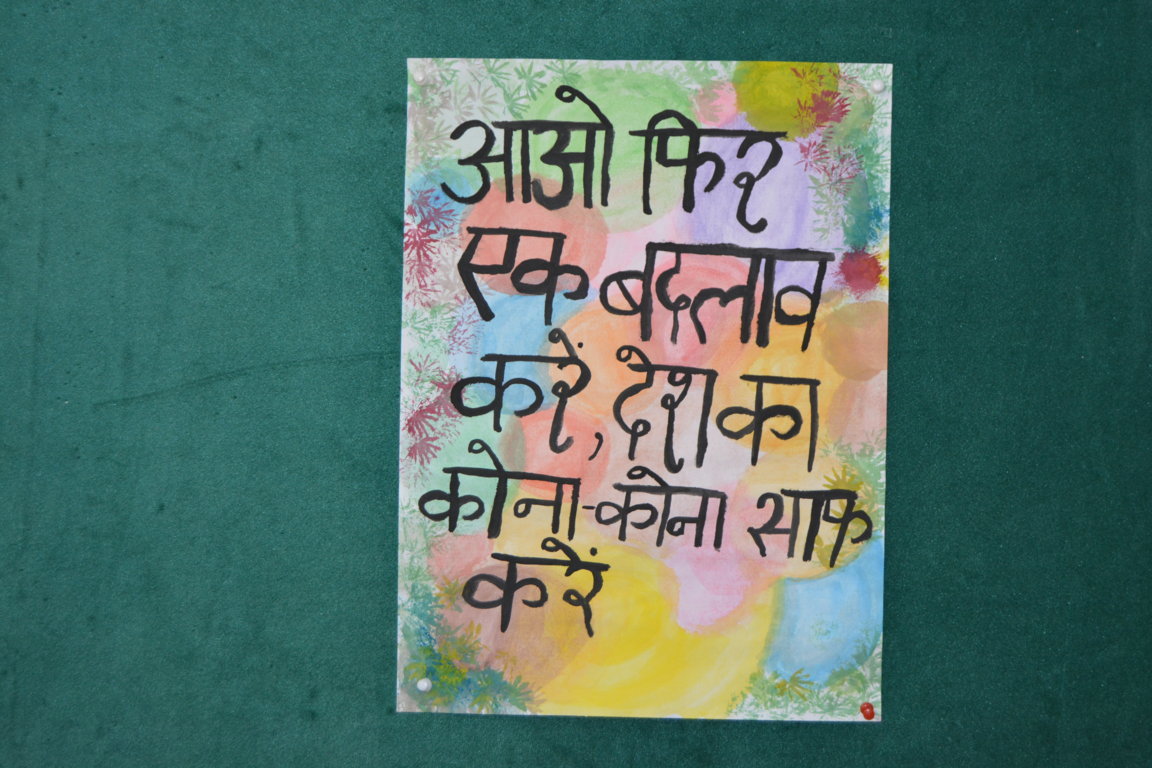 आओ फिर
एक बदलाव
करें, देश का
कोना-कोना साफ
करें